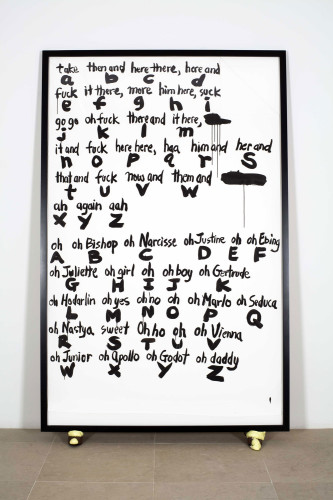 take then and here there, here and
a b c d
fuck it there, more him here, suck
e f g h i
go go oh fuck there and it here,
j k l m
it and fuck here here, haa him and her and
n o p q r s
that and fuck now and them and
t u v w
ah again aah
x y z
oh oh Bishop oh Narcisse oh Justine oh oh Ebing
A B C D E F
oh Juliette oh girl oh oh boy oh Gertrude
G H I J K
oh Hodarlin oh yes oh no oh oh Marlo oh Seduca
L M N O P Q
oh Nastya sweet Oh ho oh oh Vienna
R S T U V
oh Junior oh Apollo oh Godot oh daddy
W X Y Z